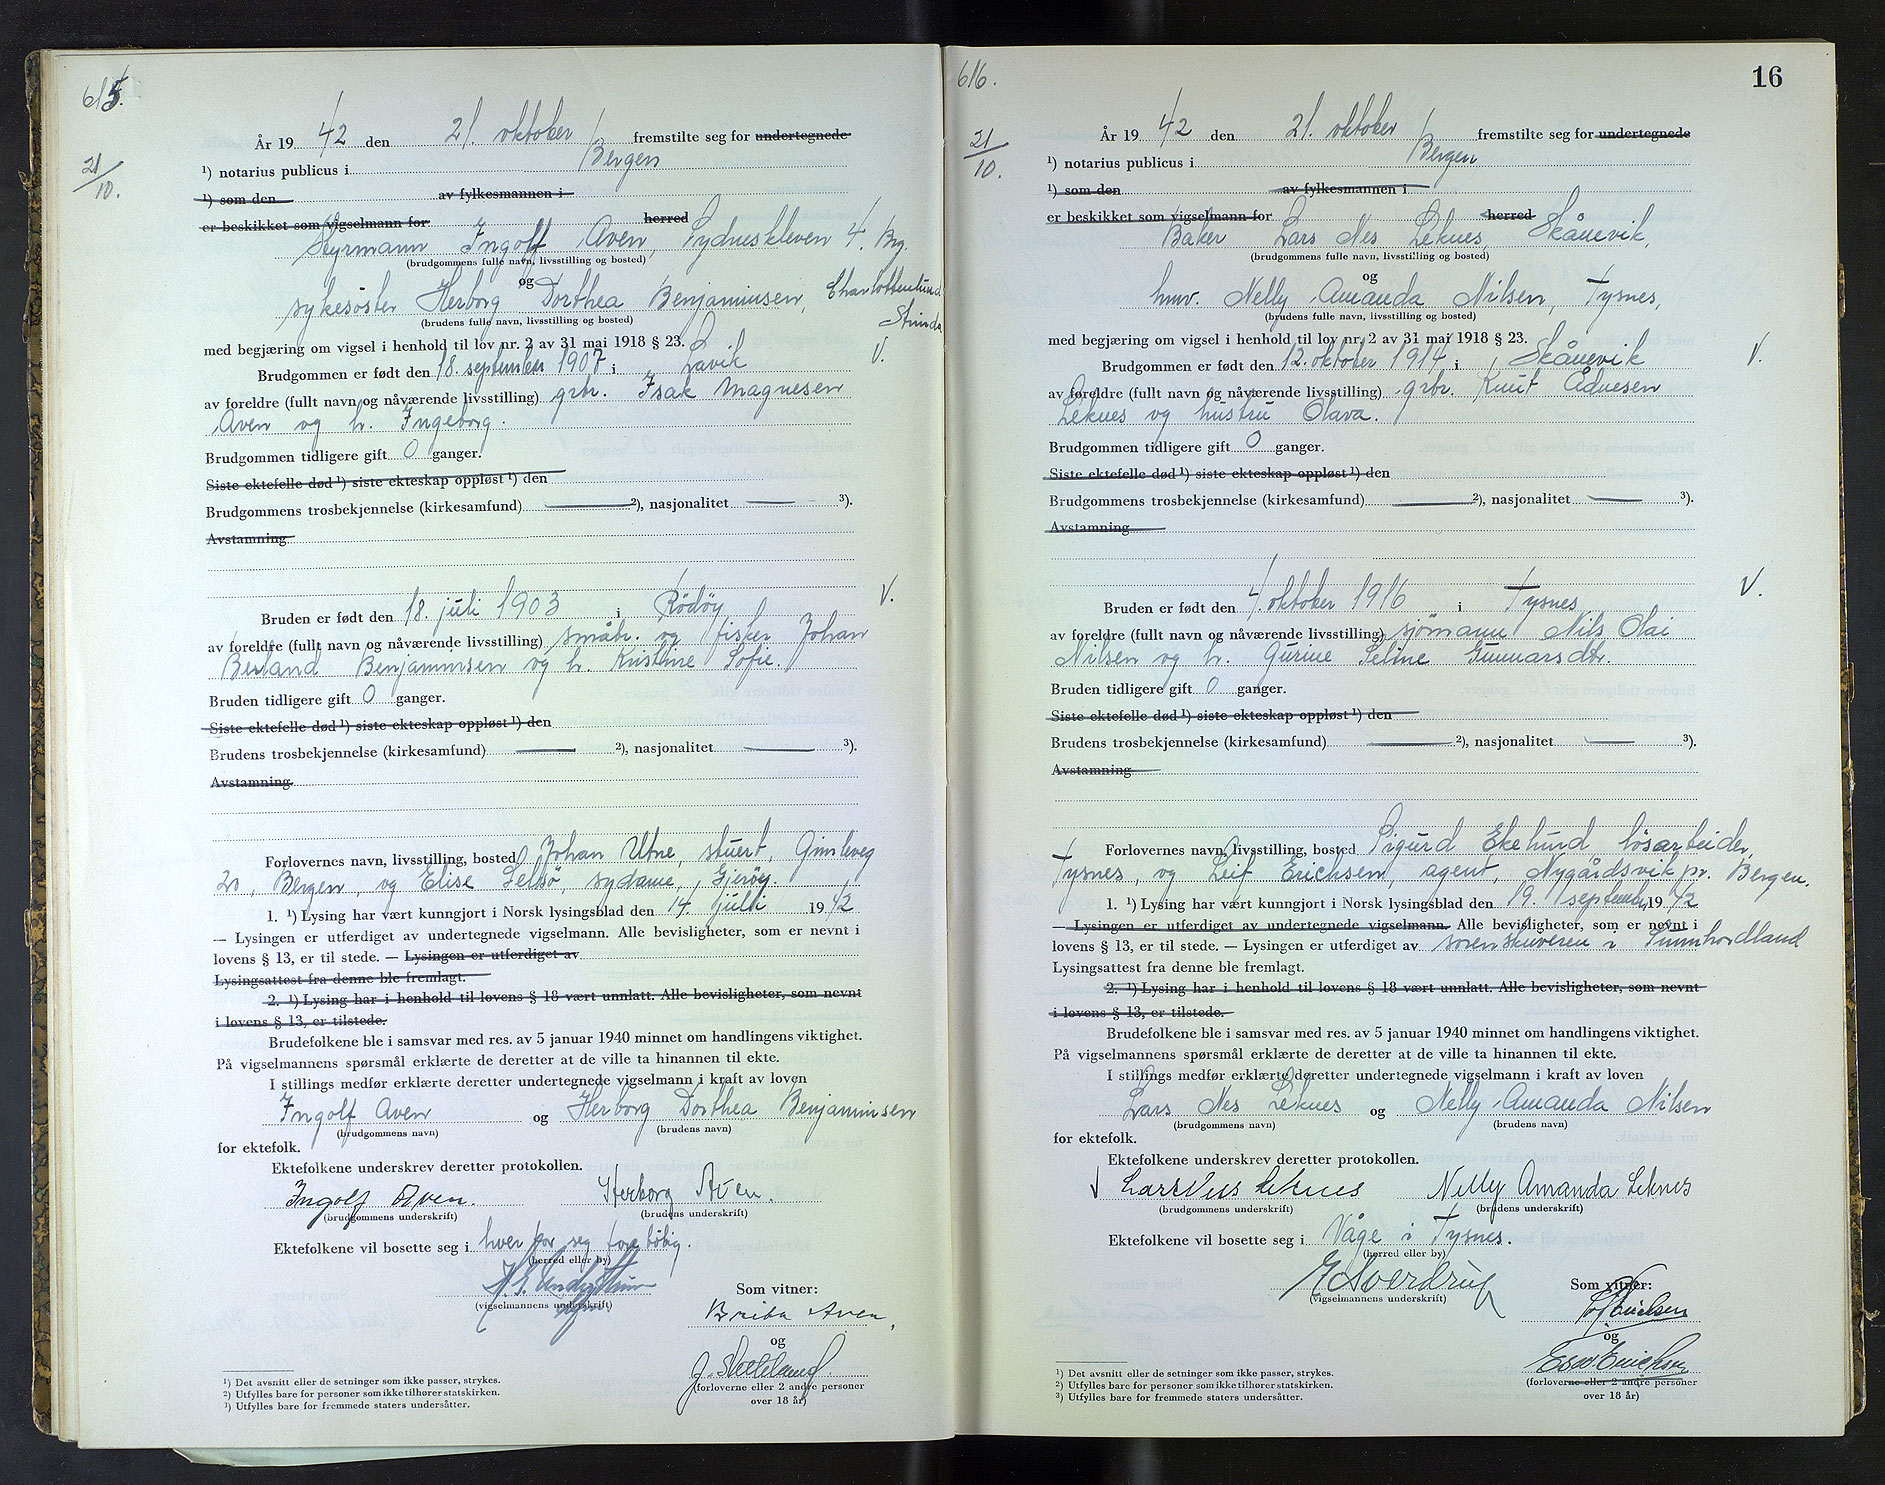 615.
21/10.
År 19 42 den 21. oktober fremstilte seg for undertegnede
¹) notarius publicus i Bergen
¹) som den av fylkesmannen i
er beskikket som vigselmann for herred
Styrmann Ingolf Aven, Sydneskleven 4. Brg.
(brudgommens fulle navn, livsstilling og bosted)
og
sykesöster Herborg Dorthea Benjaminsen, Charlottenlund
Strinda
(brudens fulle navn, livsstilling og bosted)
med begjæring om vigsel i henhold til lov nr. 2 av 31 mai 1918 § 23.
Brudgommen er født den 18. september 1907 i Lavik V.
av foreldre (fullt navn og nåværende livsstilling) grbr. Isak Magnesen
Aven og h. Ingeborg.
Brudgommen tidligere gift 0 ganger.
Siste ektefelle død ¹) siste ekteskap oppløst ¹) den
Brudgommens trosbekjennelse (kirkesamfund) ²), nasjonalitet ³).
Avstamning
Bruden er født den 18. juli 1903 i Rödöy V.
av foreldre (fullt navn og nåværende livsstilling) småbr. og fisker Johan
Berland Benjaminsen og h. Kristine Sofie.
Bruden tidligere gift 0 ganger.
Siste ektefelle død ¹) siste ekteskap oppløst ¹) den
Brudens trosbekjennelse (kirkesamfund) ²), nasjonalitet ³).
Avstamning
Forlovernes navn, livsstilling, bosted Johan Utne, stuert, Gimleveg
20, Bergen, og Elise Selsö, sydame, Gjeröy.
1. ¹) Lysing har vært kunngjort i Norsk lysingsblad den 14. juli 1942
— Lysingen er utferdiget av undertegnede vigselmann. Alle bevisligheter, som er nevnt i
lovens § 13, er til stede. — Lysingen er utferdiget av
Lysingsattest fra denne ble fremlagt.
2. ¹) Lysing har i henhold til lovens § 18 vært unnlatt. Alle bevisligheter, som nevnt
i lovens § 13, er tilstede.
Brudefolkene ble i samsvar med res. av 5 januar 1940 minnet om handlingens viktighet.
På vigselmannens spørsmål erklærte de deretter at de ville ta hinannen til ekte.
I stillings medfør erklærte deretter undertegnede vigselmann i kraft av loven
Ingolf Aven og Herborg Dorthea Benjaminsen
(brudgommens navn) (brudens navn)
for ektefolk.
Ektefolkene underskrev deretter protokollen.
Ingolf Aven. Herborg Aven.
(brudgommens underskrift) (brudens underskrift)
Ektefolkene vil bosette seg i hver for seg foreløbig.
(herred eller by)
(vigselmannens underskrift)
Som vitner:
Aven,
og
(forloverne eller 2 andre personer
over 18 år)
¹) Det avsnitt eller de setninger som ikke passer, strykes.
²) Utfylles bare for personer som ikke tilhører statskirken.
³) Utfylles bare for fremmede staters undersåtter.
616.
16
21/10.
År 19 42 den 21. oktober fremstilte seg for undertegnede
¹) notarius publicus i Bergen
¹) som den av fylkesmannen i
er beskikket som vigselmann for herred
Baker Lars Nes Leknes, Skånevik,
(brudgommens fulle navn, livsstilling og bosted)
og
hmv. Nelly Amanda Nilsen, Tysnes,
(brudens fulle navn, livsstilling og bosted)
med begjæring om vigsel i henhold til lov nr. 2 av 31 mai 1918 § 23.
Brudgommen er født den 12. oktober 1914 i Skånevik V.
av foreldre (fullt navn og nåværende livsstilling) grbr. Knut Ådnesen
Leknes og hustru Olava.
Brudgommen tidligere gift 0 ganger.
Siste ektefelle død ¹) siste ekteskap oppløst ¹) den
Brudgommens trosbekjennelse (kirkesamfund) ²), nasjonalitet ³).
Avstamning
Bruden er født den 4. oktober 1916 i Tysnes V.
av foreldre (fullt navn og nåværende livsstilling) sjömann Nils Olai
Nilsen og h. Gurine Seline Gunnarsdtr.
Bruden tidligere gift 0 ganger.
Siste ektefelle død ¹) siste ekteskap oppløst ¹) den
Brudens trosbekjennelse (kirkesamfund) ²), nasjonalitet ³).
Avstamning
Forlovernes navn, livsstilling, bosted Sigurd Ekelund, lösarbeider,
Tysnes, og Leif Erichsen, agent, Nygårdsvik pr. Bergen.
1. ¹) Lysing har vært kunngjort i Norsk lysingsblad den 19. september 1942
— Lysingen er utferdiget av undertegnede vigselmann. Alle bevisligheter, som er nevnt i
lovens § 13, er til stede. — Lysingen er utferdiget av sorenskriveren i Sunnhordland
Lysingsattest fra denne ble fremlagt.
2. ¹) Lysing har i henhold til lovens § 18 vært unnlatt. Alle bevisligheter, som nevnt
i lovens § 13, er tilstede.
Brudefolkene ble i samsvar med res. av 5 januar 1940 minnet om handlingens viktighet.
På vigselmannens spørsmål erklærte de deretter at de ville ta hinannen til ekte.
I stillings medfør erklærte deretter undertegnede vigselmann i kraft av loven
Lars Nes Leknes og Nelly Amanda Nilsen
(brudgommens navn) (brudens navn)
for ektefolk.
Ektefolkene underskrev deretter protokollen.
Lars Nes Leknes Nelly Amanda Leknes
(brudgommens underskrift) (brudens underskrift)
Ektefolkene vil bosette seg i Våge i Tysnes.
(herred eller by)
E Sverdrup
(vigselmannens underskrift)
Som vitner:
og
Erichsen
(forloverne eller 2 andre personer
over 18 år)
¹) Det avsnitt eller de setninger som ikke passer, strykes.
²) Utfylles bare for personer som ikke tilhører statskirken.
³) Utfylles bare for fremmede staters undersåtter.